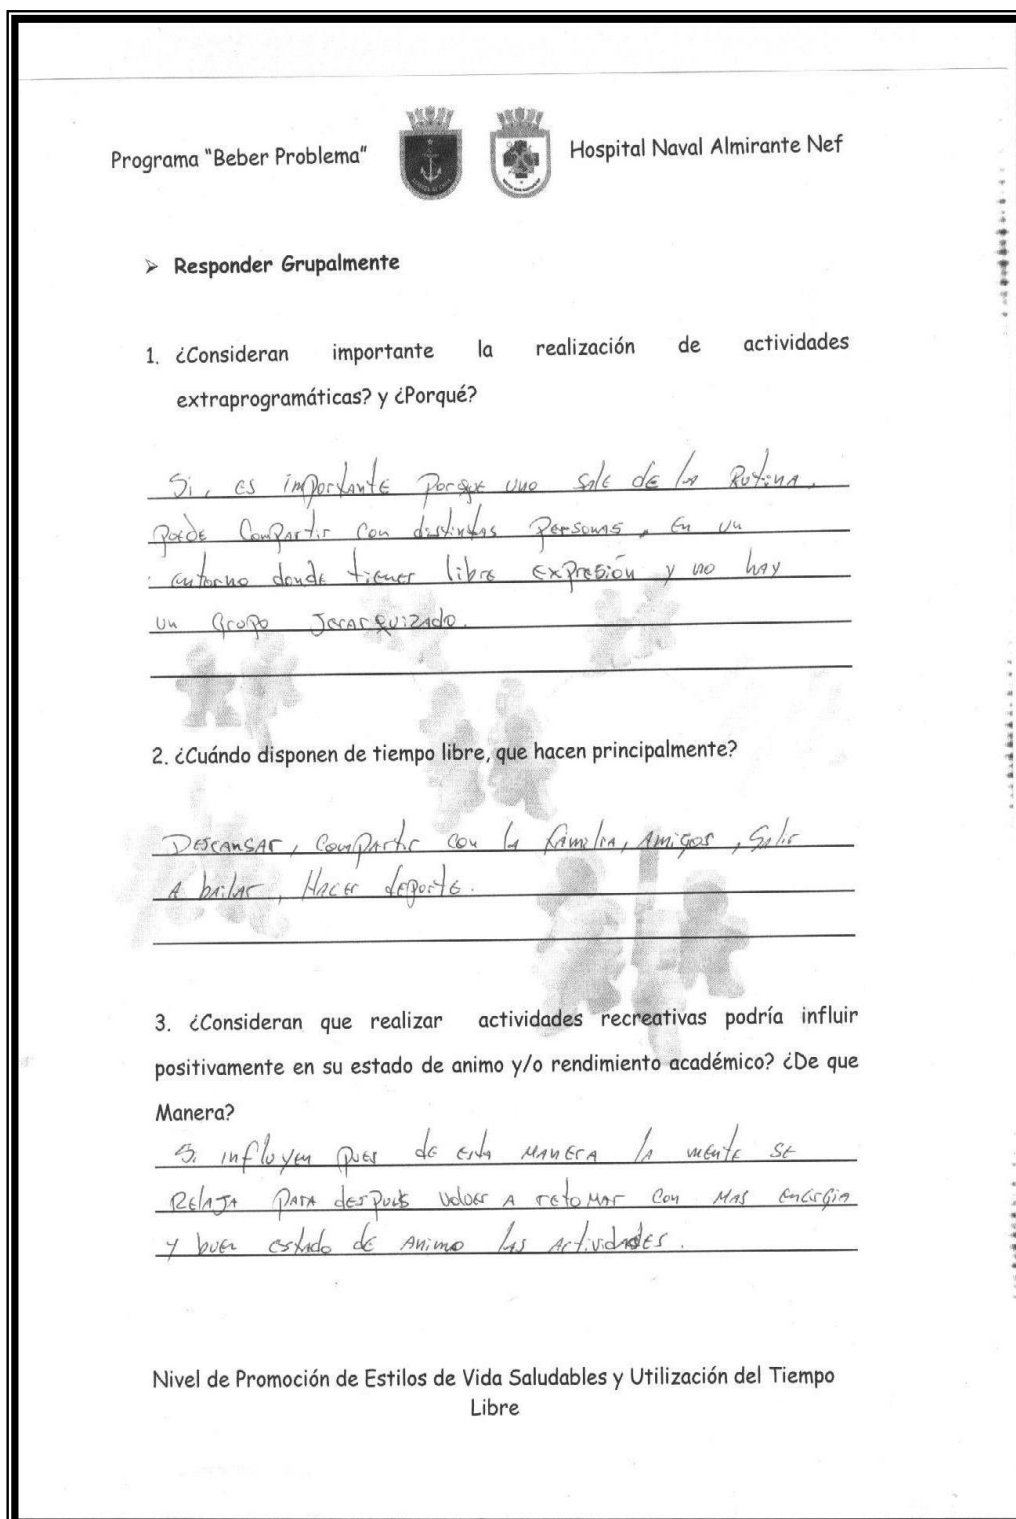 Programa "Beber Problema"
Hospital Naval Almirante Nef
➢ Responder Grupalmente
1. ¿Consideran importante la realización de actividades
extraprogramáticas? y ¿Porqué?
Si, es importante porque uno sale de la Rutina.
puede compartir con distintas personas, en un
entorno donde tienes libre expresión y no hay
un grupo Jerarquizado.
2. ¿Cuándo disponen de tiempo libre, que hacen principalmente?
Descansar, compartir con la familia, amigos, salir
a bailar, Hacer deporte.
3. ¿Consideran que realizar actividades recreativas podría influir
positivamente en su estado de animo y/o rendimiento académico? ¿De que
Manera?
Si influyen pues de esta manera la mente se
Relaja para despues volver a retomar con mas energia
y buen estado de animo las actividades.
Nivel de Promoción de Estilos de Vida Saludables y Utilización del Tiempo
Libre